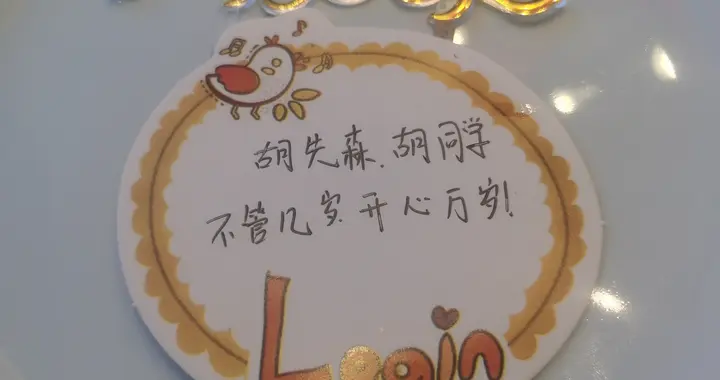 胡先森.胡同学
不管几岁.开心万岁!
Login